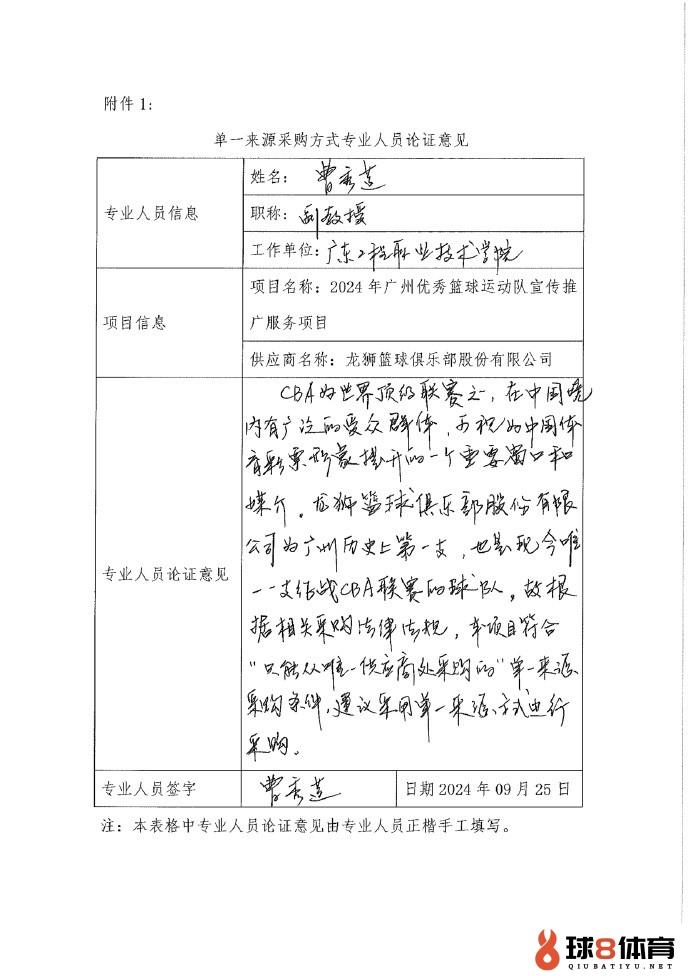 附件 1：
单一来源采购方式专业人员论证意见
专业人员信息
姓名： 曹秀莲
职称： 副教授
工作单位：广东工程职业技术学院
项目信息
项目名称：2024 年广州优秀篮球运动队宣传推
广服务项目
供应商名称：龙狮篮球俱乐部股份有限公司
专业人员论证意见
CBA为世界顶级联赛之一，在中国境
内有广泛的受众群体，可视为中国体
育彩票形象提升的一个重要窗口和
媒介。龙狮篮球俱乐部股份有限
公司为广州历史上第一支，也是现今唯
一一支征战CBA联赛的球队。故根
据相关采购法律法规，本项目符合
“只能从唯一供应商处采购的”单一来源
采购条件，建议采用单一来源方式进行
采购。
专业人员签字
曹秀莲
日期 2024 年 09 月 25 日
注：本表格中专业人员论证意见由专业人员正楷手工填写。
球8体育
QIUBATIYU.NET